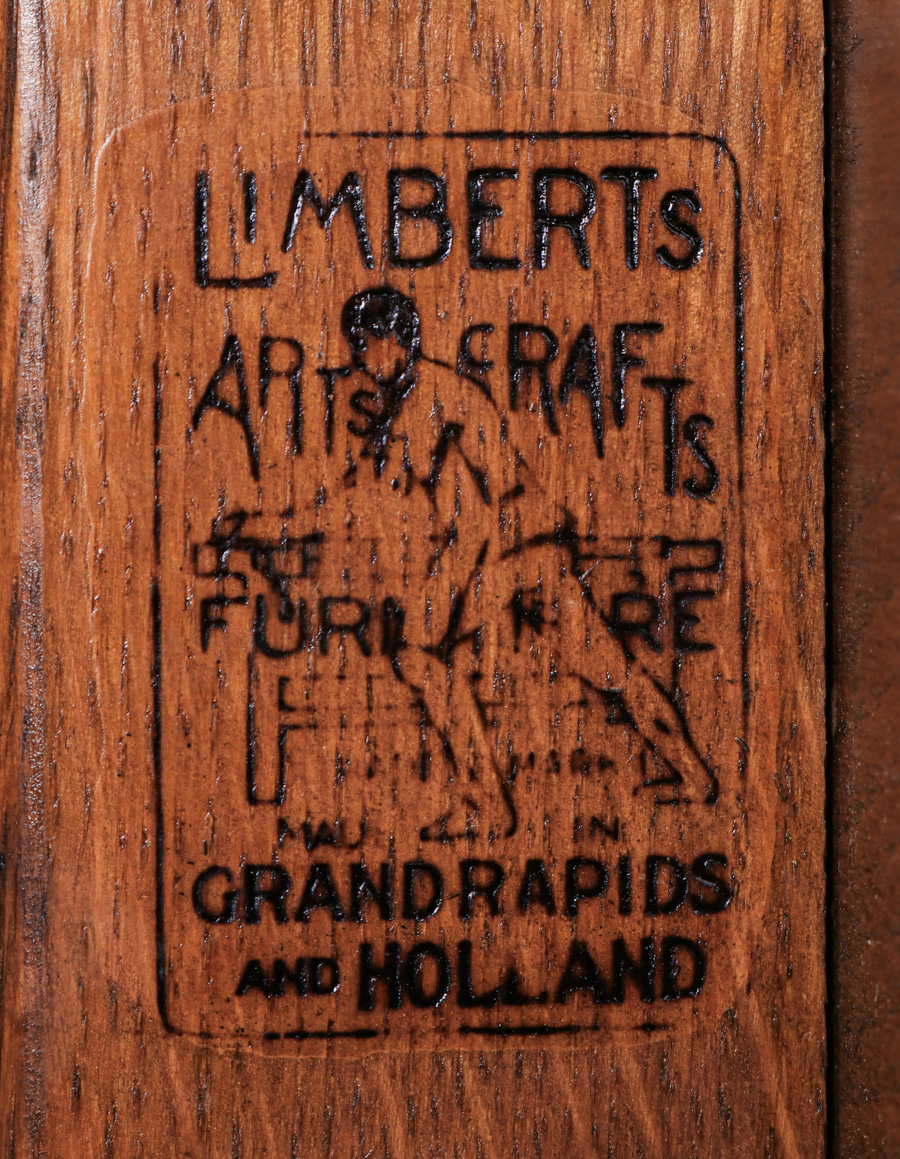 LIMBERTS
ARTS CRAFTS
FURNITURE
MADE IN
GRAND RAPIDS
AND HOLLAND